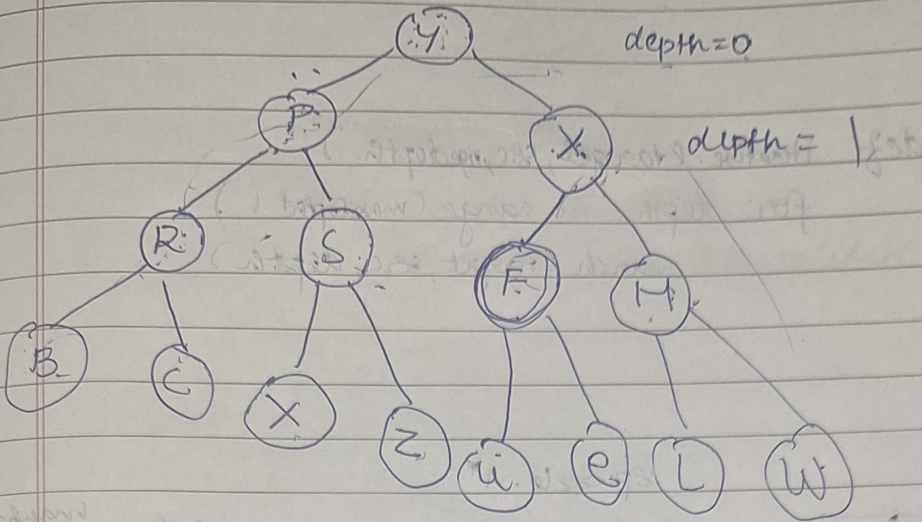 Y depth=0
P X depth = 1
R S F H
B C X Z u e L W